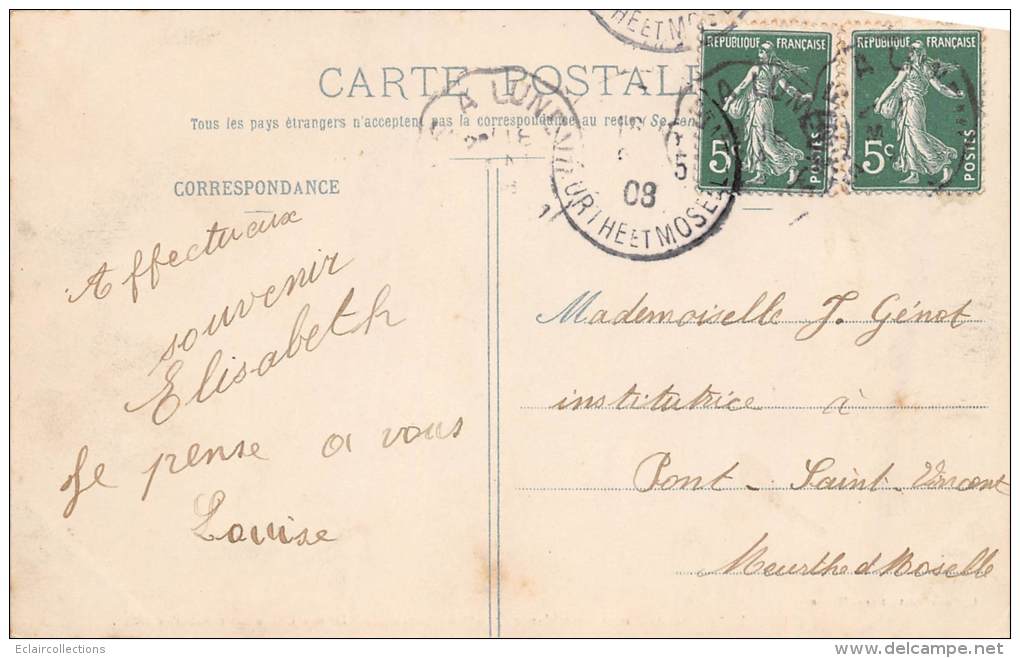 HE ET MOSE
RÉPUBLIQUE FRANÇAISE
RÉPUBLIQUE FRANÇAISE
CARTE POSTALE
Tous les pays étrangers n'acceptent pas la correspondance au recto
5c
POSTES
5c
POSTES
A LUN
08
MEURTHE ET MOSELLE
CORRESPONDANCE
Affectueux
souvenir
Elisabeth
Je pense a vous
Louise
Mademoiselle J. Génot
institutrice à
Pont-Saint-Vincent
Meurthe et Moselle
Eclaircollections